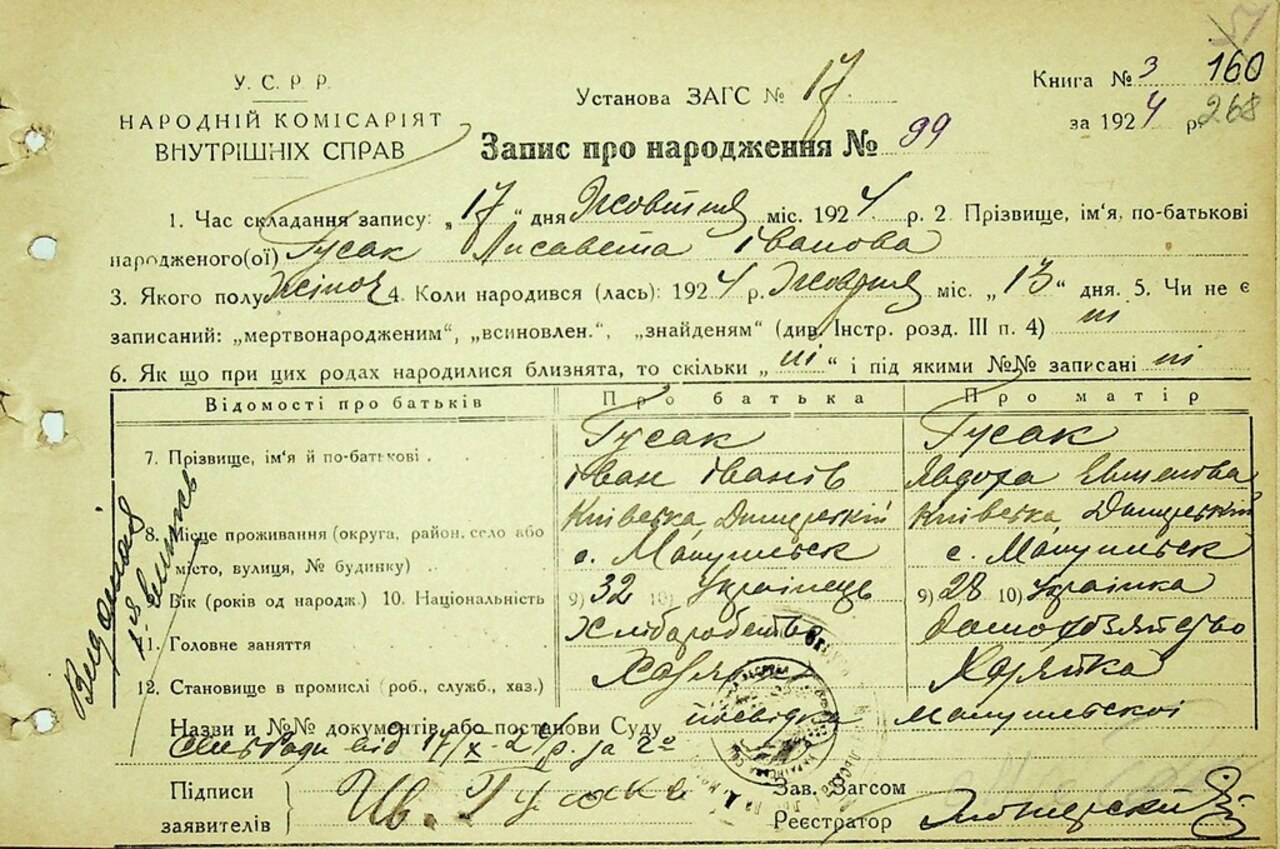 У. С. Р Р.
НАРОДНІЙ КОМІСАРІЯТ
ВНУТРІШНІХ СПРАВ
Установа ЗАГС № 17
Книга № 3 160
за 1924 р. 268
Запис про народження № 99
1. Час складання запису: „17“ дня Жовтня міс. 1924 р. 2. Прізвище, ім'я, по-батькові
народженого(ої) Гусак Лисавета Іванова
3. Якого полу Жіноч 4. Коли народився (лась): 1924 р. Жовтня міс. „13“ дня. 5. Чи не є
записаний: „мертвонародженим“, „всиновлен.“, „знайденям“ (див. Інстр. розд. III п. 4) ні
6. Як що при цих родах народилися близнята, то скільки „ні“ і під якими №№ записані ні
Відомості про батьків Про батька Про матір
7. Прізвище, ім'я й по-батькові . Гусак Гусак
Іван Іванів Явдора
8. Місце проживання (округа, район, село або Київська Димерський Київська Димерський
місто, вулиця, № будинку) . с. Манульськ с. Манульск
9. Вік (років од народж.) 10. Національність 9) 32 10) Українець 9) 28 10) Українка
11. Головне заняття Хліборобство
12. Становище в промислі (роб., служб., хаз.) Хазяін Хазяйка
Назви и №№ документів або постанови Суду посвідка Манульської
Сільради від 17/X-24р. за 20
Підписи
заявителів
Ив. Гусак
Зав. Загсом
Реєстратор